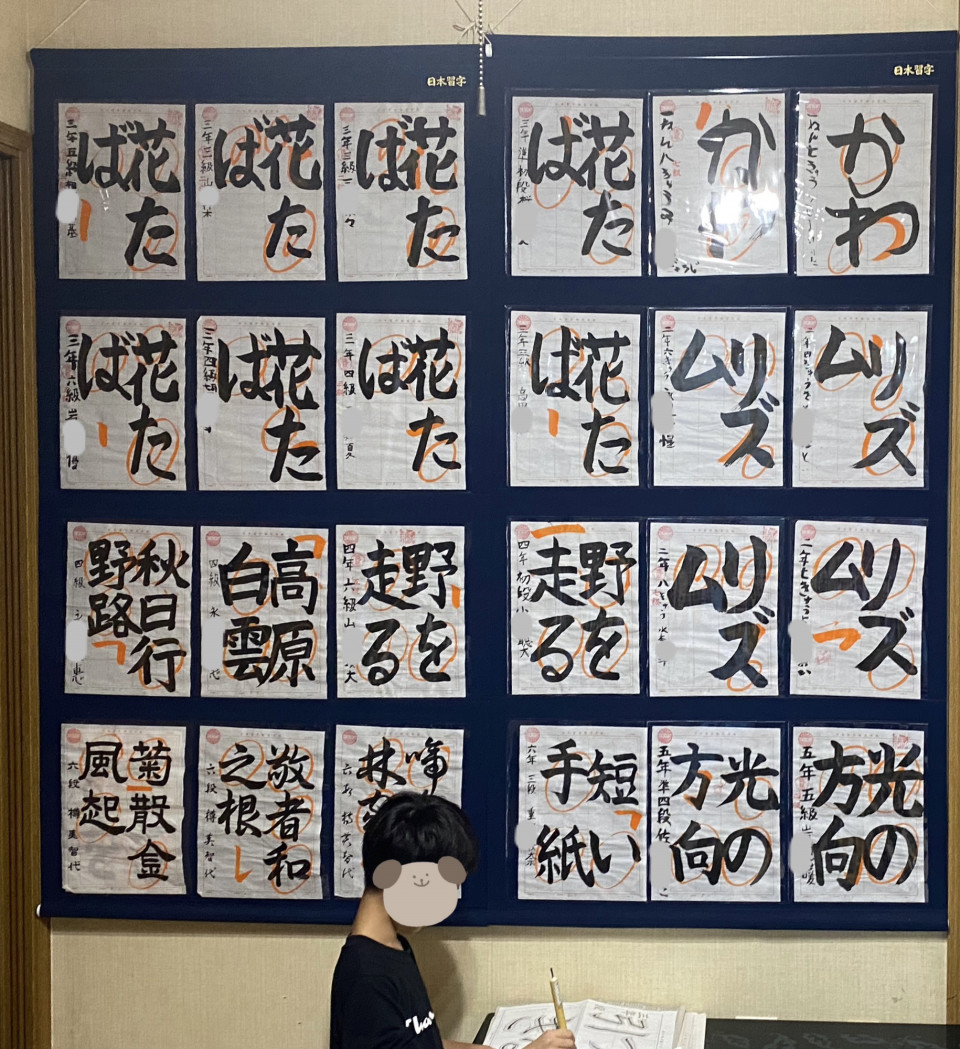 日本習字
日本習字
花た
ば
三年五級
花た
ば
三年三級
花た
ば
三年三級
花た
ば
三年準初段
かわ
一ねん八きゅう
かわ
花た
ば
三年六級
花た
ば
三年四級
花た
ば
三年四級
花た
ば
リズ
ム
二年六きゅう
リズ
ム
秋日行
野路
四級
高原
白雲
四級
野を
走る
四年六級
野を
走る
四年初段
リズ
ム
二年八きゅう
リズ
ム
菊散金
風起
六段
敬者和
之根
六段
啼
林
短い
手紙
六年三段
光の
方向
五年準四段
光の
方向
五年五級